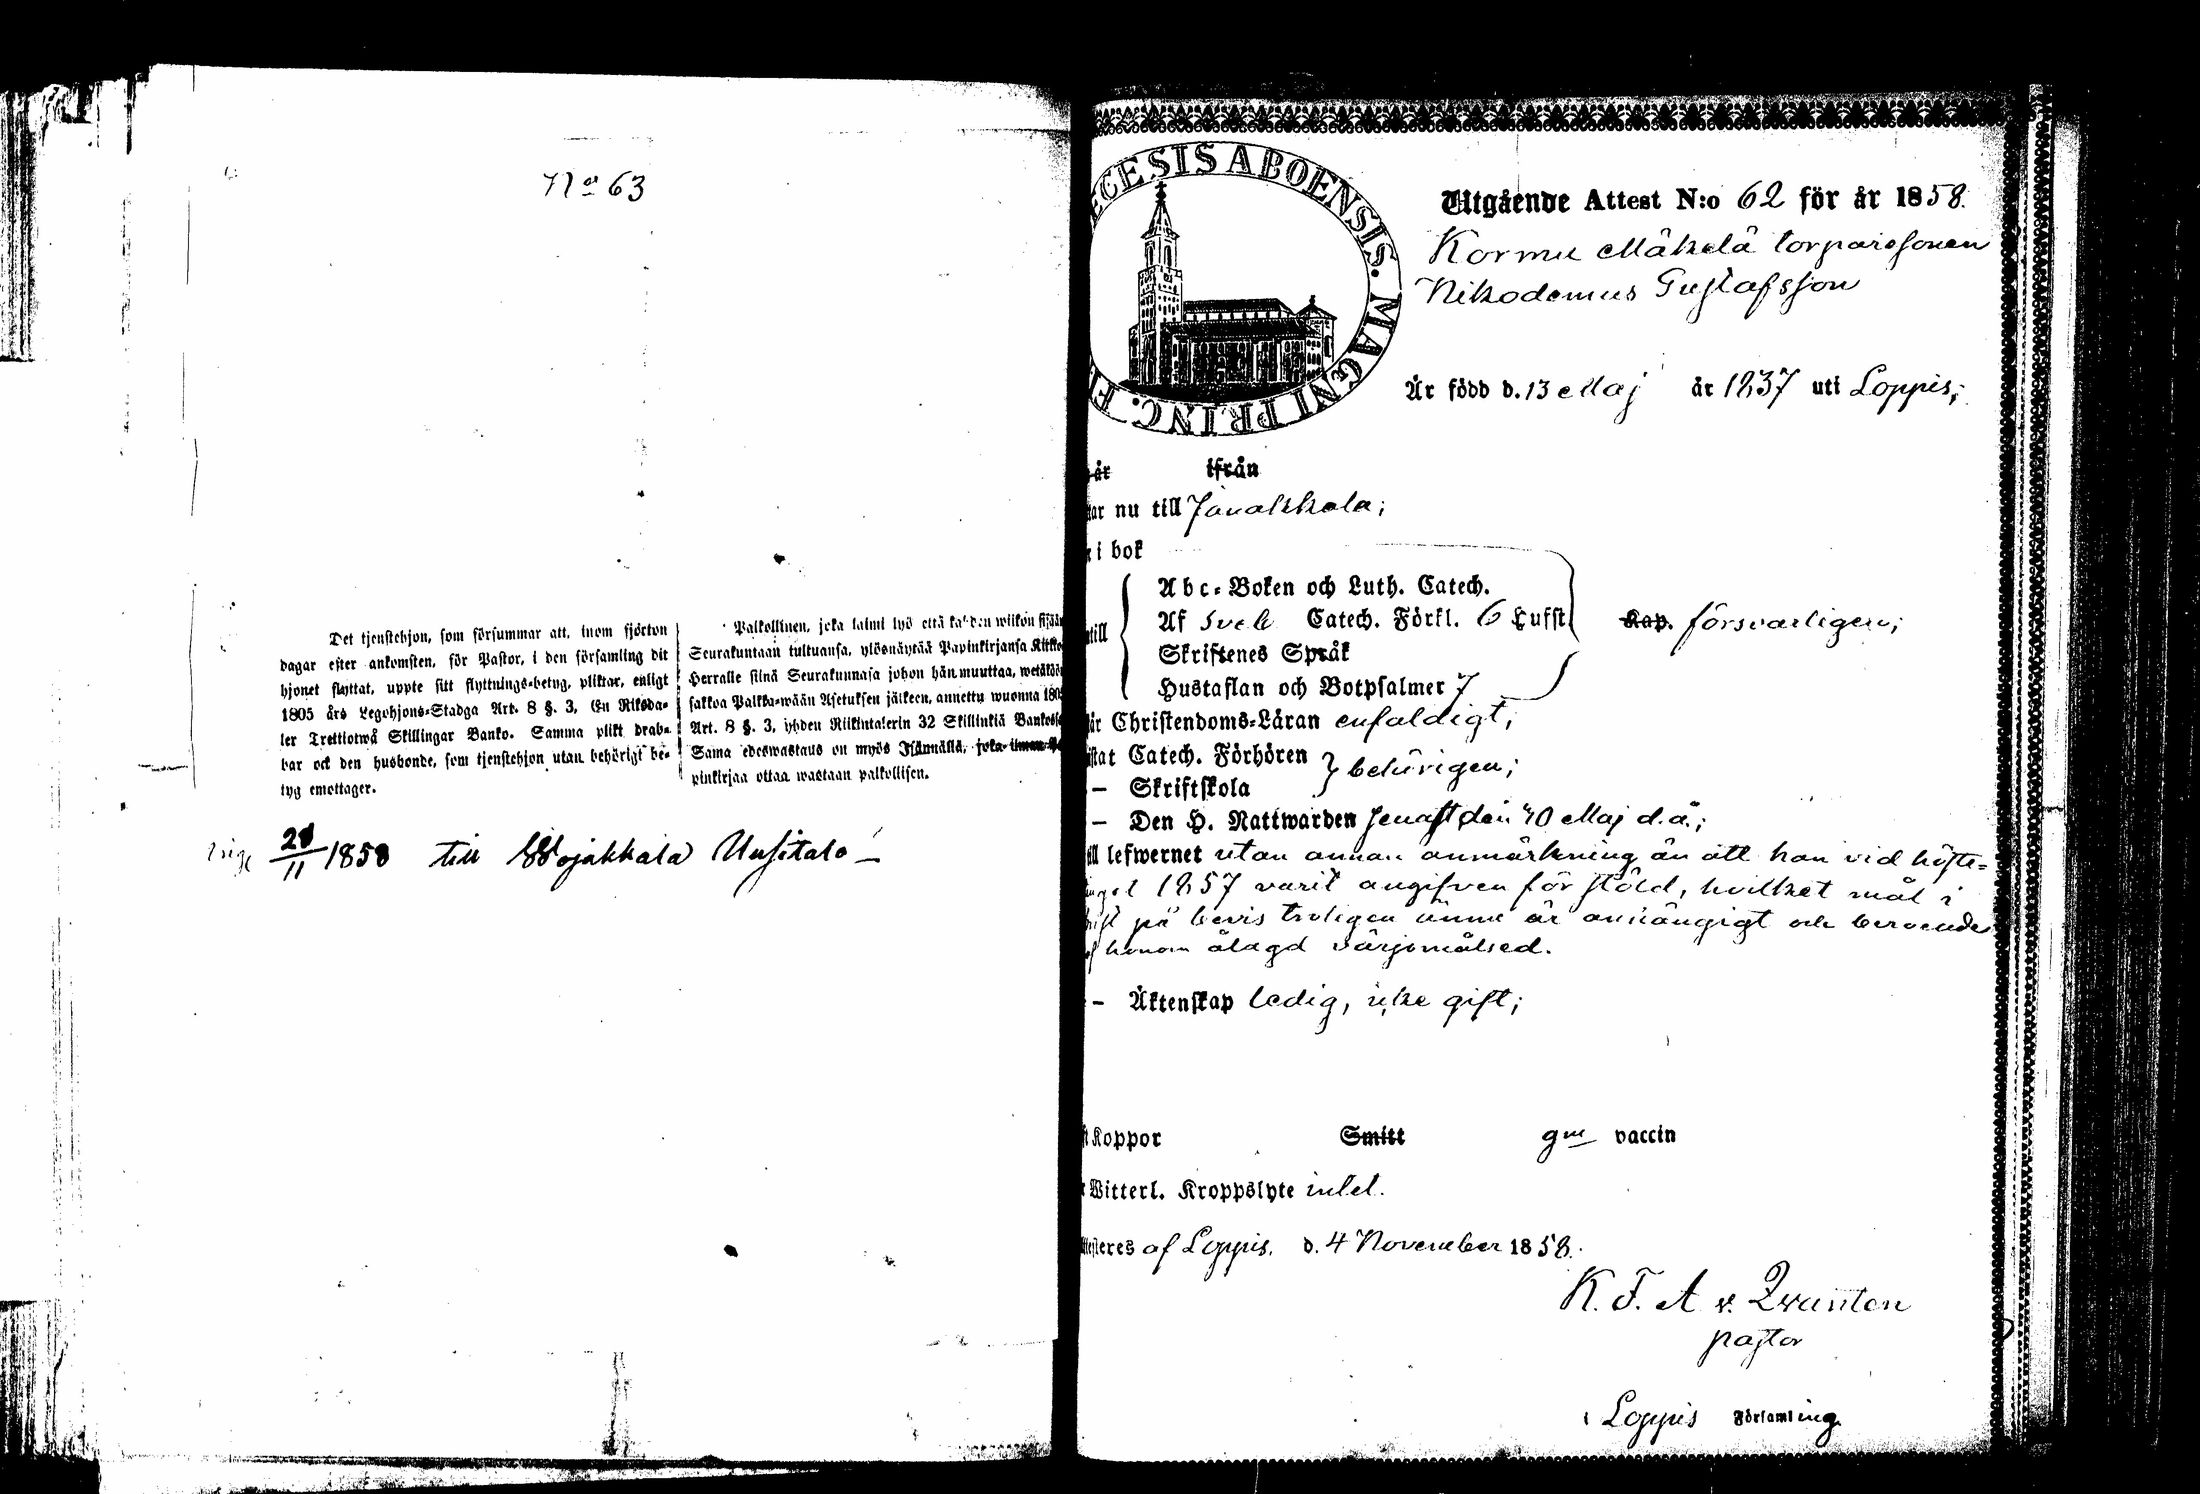 No 63
Det tjenstehjon, som försummar att, inom fjorton
dagar efter ankomsten, för Pastor, i den församling dit
hjonet flyttat, uppte sitt flyttnings-betyg, pliktar, enligt
1805 års Legohjons-Stadga Art. 8 §. 3, En Riksda-
ler Trettiotwå Skillingar Banko. Samma plikt drab-
bar ock den husbonde, som tjenstehjon utan behörigt be-
tyg emottager.
Palkollinen, joka laimi lyö että kahden wiikon sisään
Seurakuntaan tultuansa, ylösnäytää Papinkirjansa Kirkko
Herralle siinä Seurakunnasa johon hän muuttaa, wetäköön
sakkoa Palkka-wään Asetuksen jälkeen, annettu wuonna 1805
Art. 8 §. 3, yhden Riikintalerin 32 Skillinkiä Bankossa
Sama edeswastaus on myös Isännällä, joka ilman Pa
pinkirjaa ottaa wastaan palkollisen.
28/11 1858 till Wojakkala Uusitalo
ECESIS ABOENSIS. MAGNI PRINC. F
Utgående Attest N:o 62 för år 1858.
Kormu Mäkelä torparesonen
Nikodemus Gustafsson
Är född d. 13 Maj år 1837 uti Loppis;
år ifrån
ar nu till Janakkala;
i bok
Abc-Boken och Luth. Catech.
Af Sveb Catech. Förkl. 6 Hufst. Kap. försvarligen;
till
Skriftenes Språk
Hustaflan och Botpsalmer 7
år Christendoms-Läran enfaldigt;
stat Catech. Förhören
behörigen;
— Skriftskola
— Den H. Nattwarden senast den 40 Maj d. å.;
ill lefwernet utan annan anmärkning än att han vid höste-
inget 1857 varit angifven för stöld, hvilket mål i
brist på bevis troligen ännu är anhängigt och beroende
af honom ålagd värjemålsed.
— Äktenskap ledig, icke gift;
Koppor Smitt gm vaccin
Witterl. Kroppslyte intet.
esteres af Loppis. d. 4 November 1858.
K. F. A v. Qvanten
pastor
i Loppis Församling